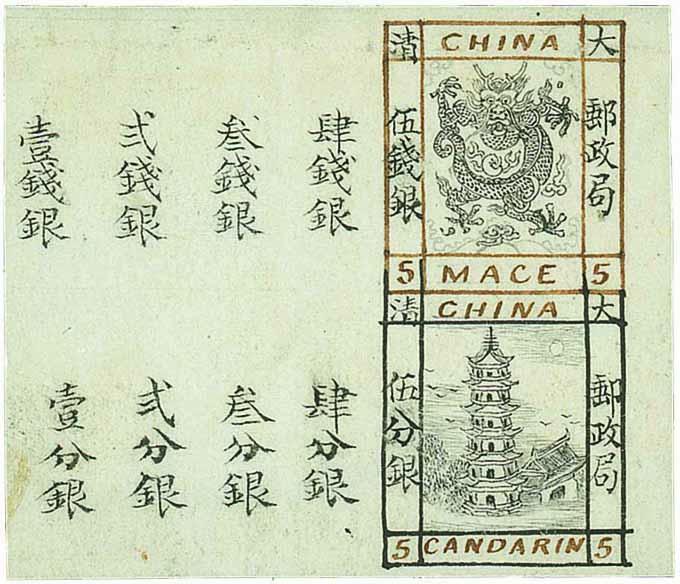 大 CHINA 清
郵政局
伍錢銀
5 MACE 5
肆錢銀
叁錢銀
弍錢銀
壹錢銀
大 CHINA 清
郵政局
伍分銀
5 CANDARIN 5
肆分銀
叁分銀
弍分銀
壹分銀